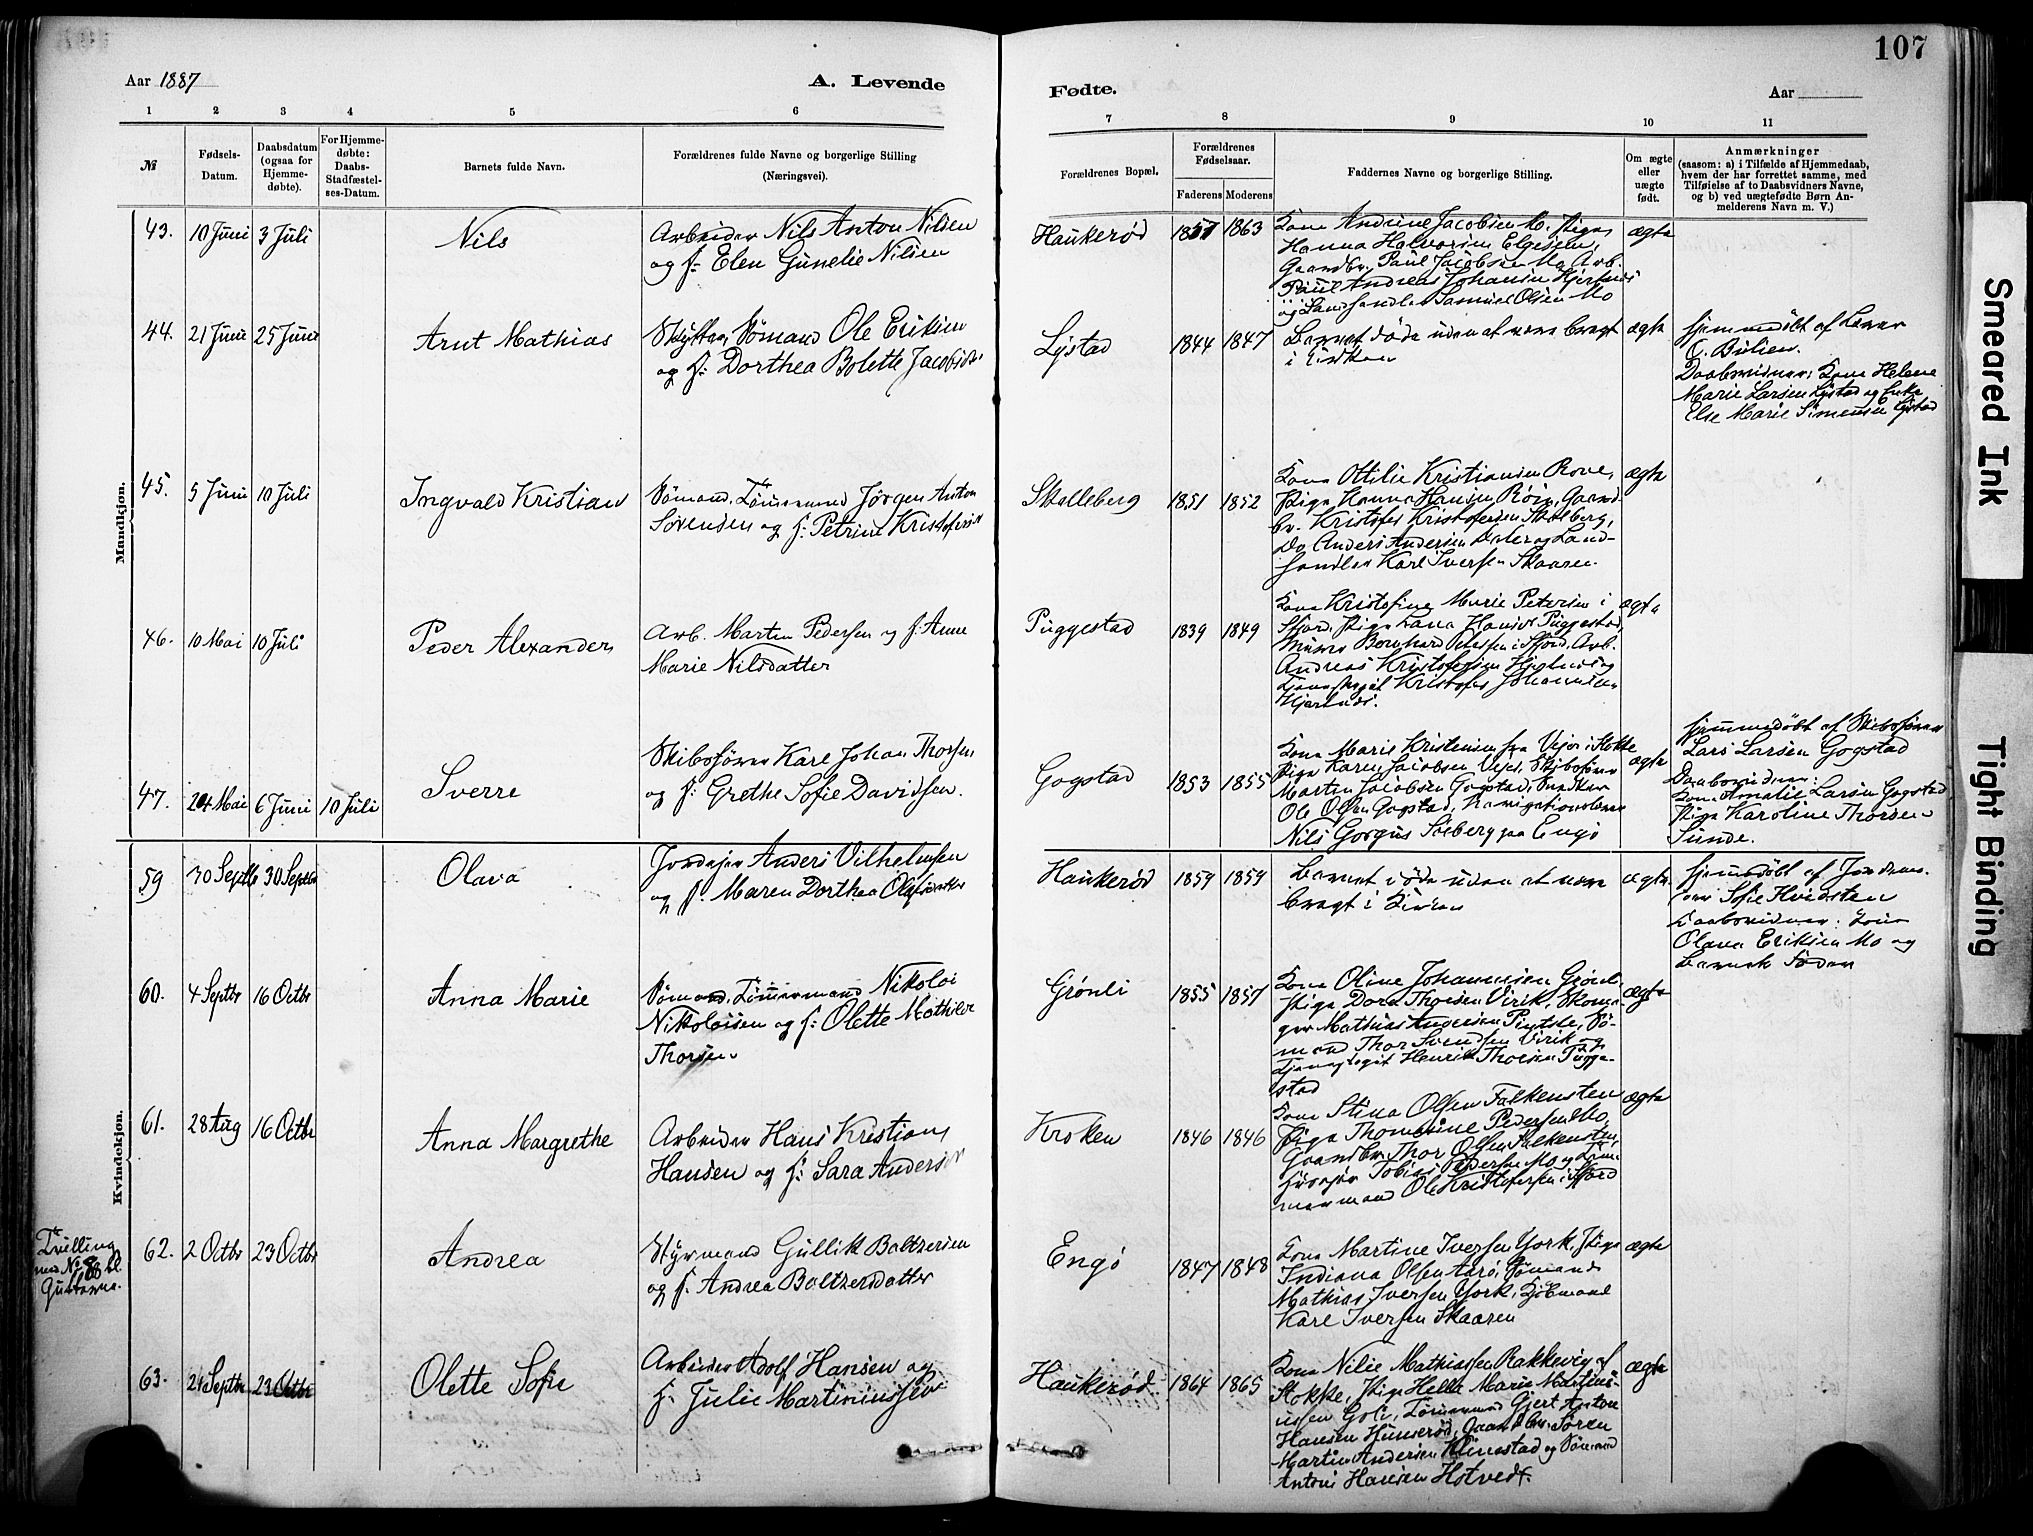 107
Aar 1887
A. Levende
Fødte.
Aar
1 2 3 4 5 6 7 8 9 10 11
№
Fødsels-
Datum.
Daabsdatum
(ogsaa for
Hjemme-
døbte).
For Hjemme-
døbte:
Daabs-
Stadfæstel-
ses-Datum.
Barnets fulde Navn.
Forældrenes fulde Navne og borgerlige Stilling
(Næringsvei).
Forældrenes Bopæl.
Forældrenes
Fødselsaar.
Faderens Moderens
Faddernes Navne og borgerlige Stilling.
Om ægte
eller
uægte
født.
Anmærkninger
(saasom: a) i Tilfælde af Hjemmedaab,
hvem der har forrettet samme, med
Tilføielse af to Daabsvidners Navne,
og b) ved uægtefødte Børn An-
melderens Navn m. V.)
Mandkjøn.
43. 10 Juni 3 Juli
Nils
Arbeider Nils Anton Nilsen
og h: Elen Gunelie Nilsen
Haukerød 1857 1863
Kone Andrine Jacobsen Mo, Pige
Hanna Halvorsen Elgesem,
Gaardbr. Paul Jacobsen Mo, Arb.
Paul Andreas Johansen Hjertnes
og Landhandler Samuel Olsen Mo
ægte
44. 21 Juni 25 Juni
Arnt Mathias
Skytter, Sømand Ole Eriksen
og h: Dorthea Bolette Jacobsdr
Lystad 1844 1847
Barnet døde uden at være bragt
i Kirken
ægte
Hjemmedøbt af Lærer
C. Bulien.
Daabsvidner: Kone Helene
Marie Larsen Lystad og Enke
Else Marie Simensen Lystad
45. 5 Juni 10 Juli
Ingvald Kristian
Sømand, Tømmermand Jørgen Anton
Sørensen og h: Petrine Kristofersdr
Skalleberg 1851 1852
Kone Ottilie Kristiansen Rove,
Pige Hanna Hansen Røis, Gaard-
br. Kristofer Kristofersen Skalberg,
Do Anders Andersen Dæler og Land-
handler Karl Iversen Skaaren.
ægte
46. 10 Mai 10 Juli
Peder Alexander
Arb. Martin Pedersen og h: Anne
Marie Nilsdatter
Puggestad 1839 1849
Kone Kristofine Marie Petersen i
Sfjord, Pige Lana Hansen Puggestad,
Murer Bernhard Petersen i Sfjord, Arb.
Andreas Kristofersen Hjertnes og
Tjenestegut Kristofer Johannesen
Hjertnes.
ægte
47. 24 Mai 6 Juni 10 Juli
Sverre
Skibsfører Karl Johan Thorsen
og h: Grethe Sofie Davidsen.
Gogstad 1853 1855
Kone Marie Kristensen fra Vejer i Stokke
Pige Karen Jacobsen Vejer, Skibsfører
Martin Jacobsen Gogstad, Snedker
Ole Olsen Gogstad, Navigationslærer
Nils Gorgus Solberg paa Engø
ægte
Hjemmedøbt af Skibsfører
Lars Larsen Gogstad
Daabsvidner:
Kone Amalie Larsen Gogstad
Pige Karoline Thorsen
Sunde.
Kvindekjøn.
59 30 Septb 30 Septbr
Olava
Jordejer Anders Vilhelmsen
og h. Maren Dorthea Olafsdatter
Haukerød 1859 1859
Barnet døde uden at være
bragt i Kirken
ægte.
Hjemdøbt af Jordemo-
der Sofie Hvidsten
Daabsvidner: Kone
Olava Eriksen Mo og
Barnets Fader
60. 4 Septbr 16 Octbr
Anna Marie
Sømand, Tømmermand Nikolai
Nikolaisen og h: Olette Mathilde
Thorsen
Grønli 1855 1857
Kone Oline Johannesen Grønli
Pige Dora Thorsen Virik, Skoma-
ger Mathias Andersen Pindsle, Sø-
mand Thor Svendsen Virik og
Tjenestegut Henrik Thorsen Pugge-
stad
ægte
61. 28 Aug 16 Octbr
Anna Margrethe
Arbeider Hans Kristian
Hansen og h: Sara Andersdr
Kroken 1846 1846
Kone Stina Olsen Falkensten
Pige Thomasine Pedersen Mo,
Gaardbr. Thor Olsen Falkensten,
Husejer Tobias Pedersen Mo og Tøm-
mermand Ole Kristofersen i Sfjord
ægte
Tvilling
med No 88 bl.
Guttene.
62. 2 Octbr 23 Octbr
Andrea
Styrmand Gullik Baltzersen
og h. Andrea Baltzersdatter
Engø 1847 1848
Kone Martine Iversen York, Pige
Indiana Olsen Aarø, Sømand
Mathias Iversen York, Kjøbmand
Karl Iversen Skaaren
ægte
63. 24 Septbr 23 Octbr
Olette Sofie
Arbeider Adolf Hansen og
h. Julie Martiniussen
Haukerød 1864 1865
Kone Nilie Mathiassen Rakkevig af
Stokke, Pige Helle Marie Martini-
ussen Goli, Tømmermand Gjert Anton
Hansen Hunserød, Gaardbr. Søren
Martin Andersen Klinestad og Sømand
Antoni Hansen Hotvedt.
ægte
Smeared Ink
Tight Binding